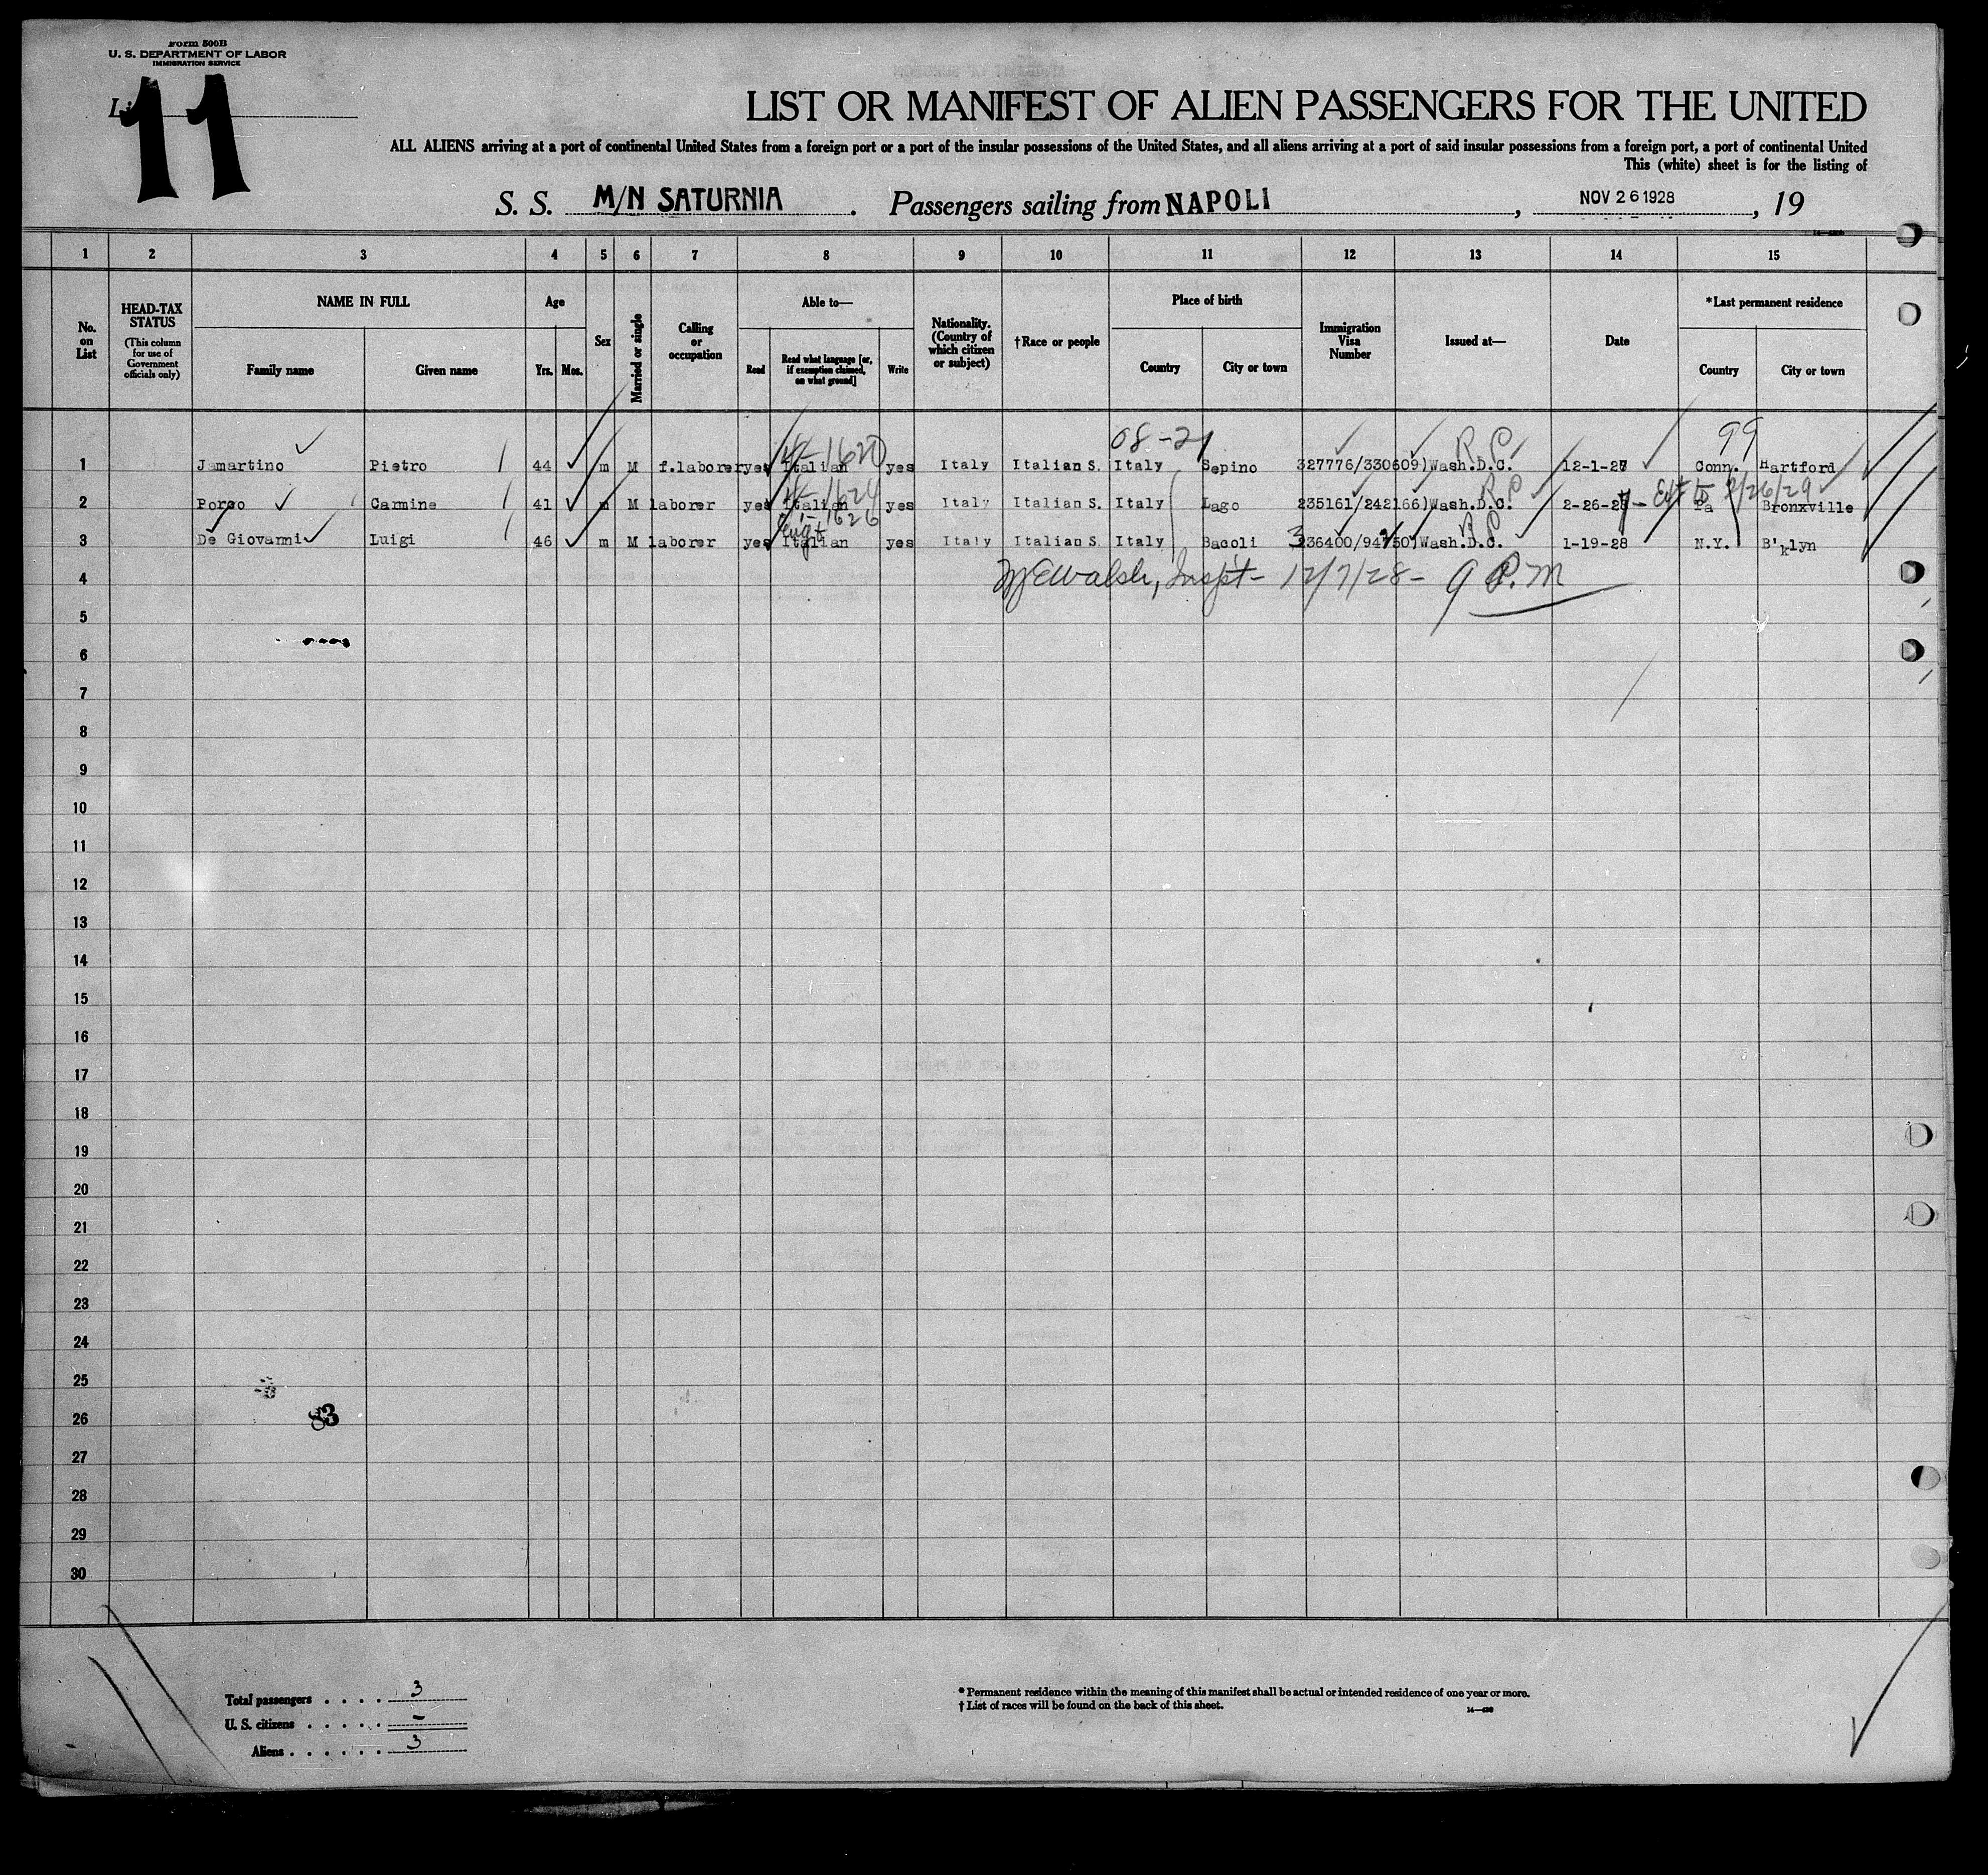 Form 500B
U. S. DEPARTMENT OF LABOR
IMMIGRATION SERVICE
11
LIST OR MANIFEST OF ALIEN PASSENGERS FOR THE UNITED
ALL ALIENS arriving at a port of continental United States from a foreign port or a port of the insular possessions of the United States, and all aliens arriving at a port of said insular possessions from a foreign port, a port of continental United
This (white) sheet is for the listing of
S. S. M/N SATURNIA. Passengers sailing from NAPOLI, NOV 26 1928, 19
1 2 3 4 5 6 7 8 9 10 11 12 13 14 15
No. on List
HEAD-TAX STATUS (This column for use of Government officials only)
NAME IN FULL
Family name Given name
Age
Yrs. Mos.
Sex
Married or single
Calling or occupation
Able to—
Read Read what language [or, if exemption claimed, on what ground] Write
Nationality. (Country of which citizen or subject)
†Race or people
Place of birth
Country City or town
Immigration Visa Number
Issued at—
Date
*Last permanent residence
Country City or town
08-21 R.P. 99
1620
1 Jamartino Pietro 44 m M f.laborer yes Italian yes Italy Italian S. Italy Sepino 327776/330609) Wash.D.C. 12-1-27 Conn. Hartford
1624 R.P. 2/26/29
2 Porco Carmine 41 m M laborer yes Italian yes Italy Italian S. Italy Lago 235161/242166) Wash.D.C. 2-26-27 Pa Bronxville
1626 R.P.
3 De Giovanni Luigi 46 m M laborer yes Italian yes Italy Italian S. Italy Bacoli 336400/94250) Wash.D.C. 1-19-28 N.Y. B'klyn
4 Walsh, Inspt- 12/7/28- 9 P.M
5
6
7
8
9
10
11
12
13
14
15
16
17
18
19
20
21
22
23
24
25
26 83
27
28
29
30
Total passengers . . . . 3
U. S. citizens . . . . . -
Aliens . . . . . . 3
* Permanent residence within the meaning of this manifest shall be actual or intended residence of one year or more.
† List of races will be found on the back of this sheet.